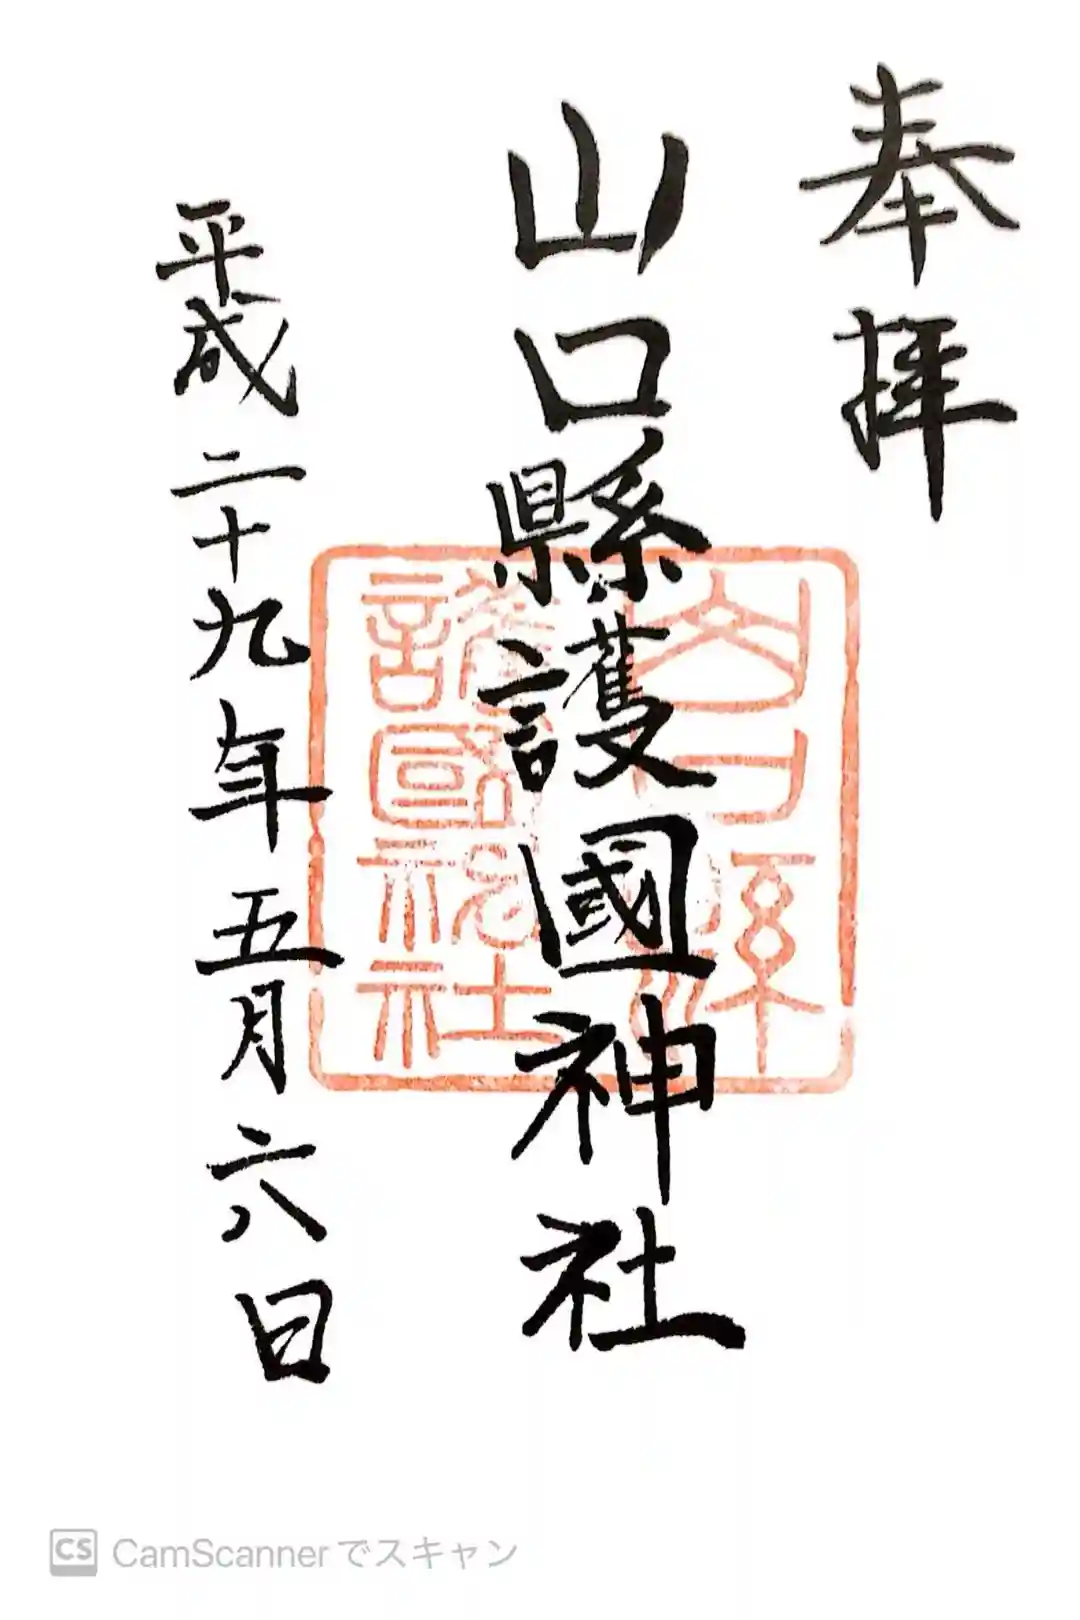 奉拝
山口縣護國神社
平成二十九年五月六日
CS CamScannerでスキャン